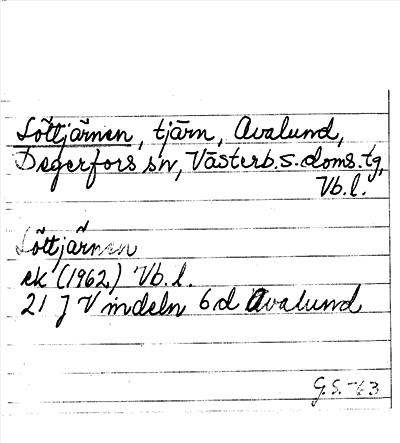 Söttjärnen, tjärn, Avalund,
Degerfors sn, Västerb.s.doms.tg,
Vb.l.
Söttjärnen
ek (1962) Vb.l.
21 J Vindeln 6d Avalund
G.S. -63